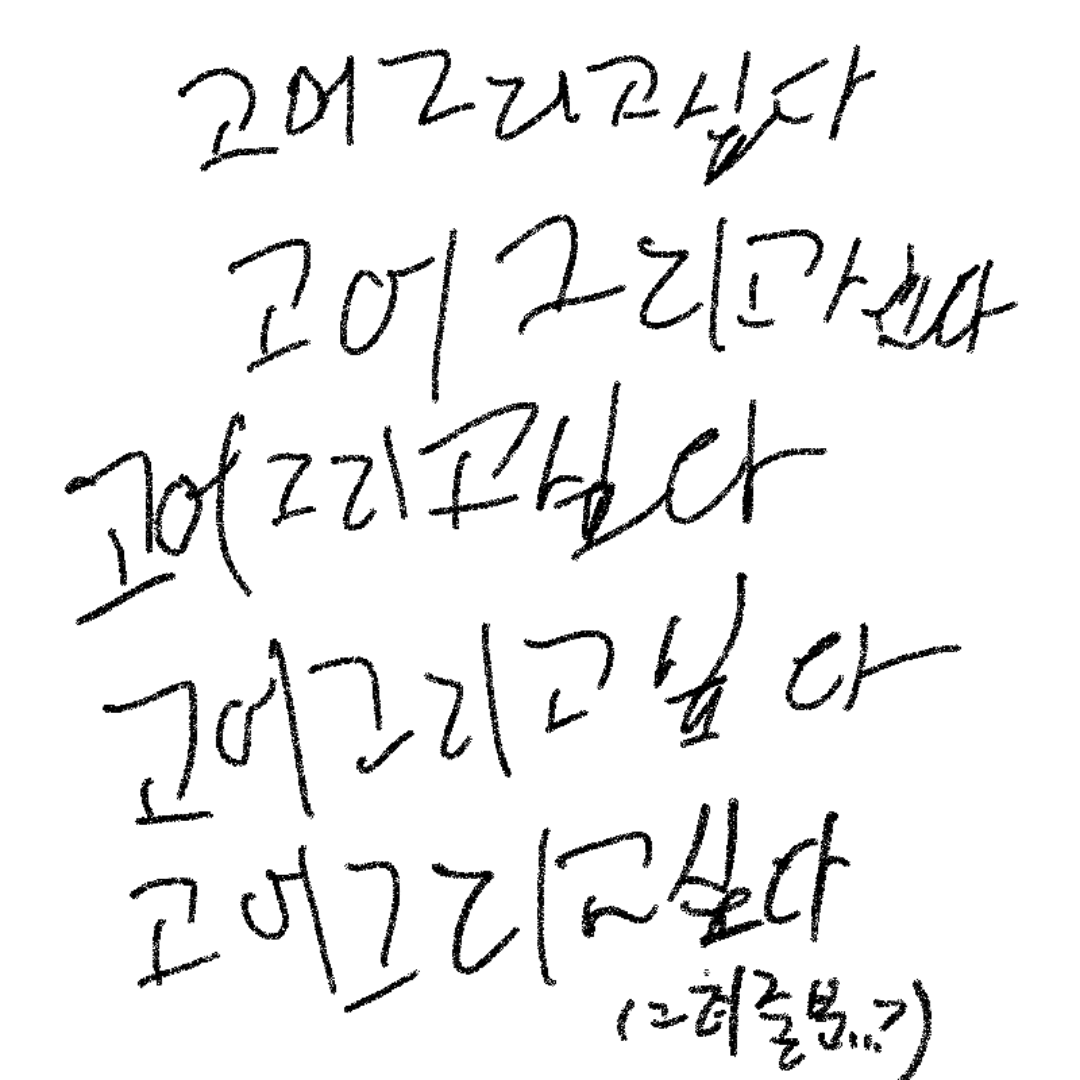 고어 그리고싶다
고어 그리고싶다
고어 그리고싶다
고어그리고싶다
고어그리고싶다
(그려줄분...?)